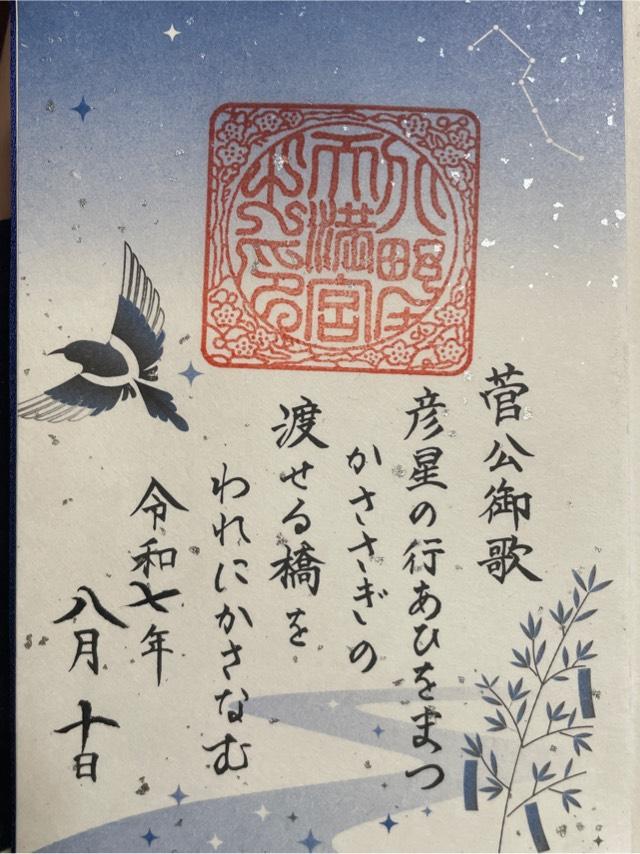 菅公御歌
彦星の行あひをまつ
かささぎの
渡せる橋を
われにかさなむ
令和七年
八月十日
天満宮